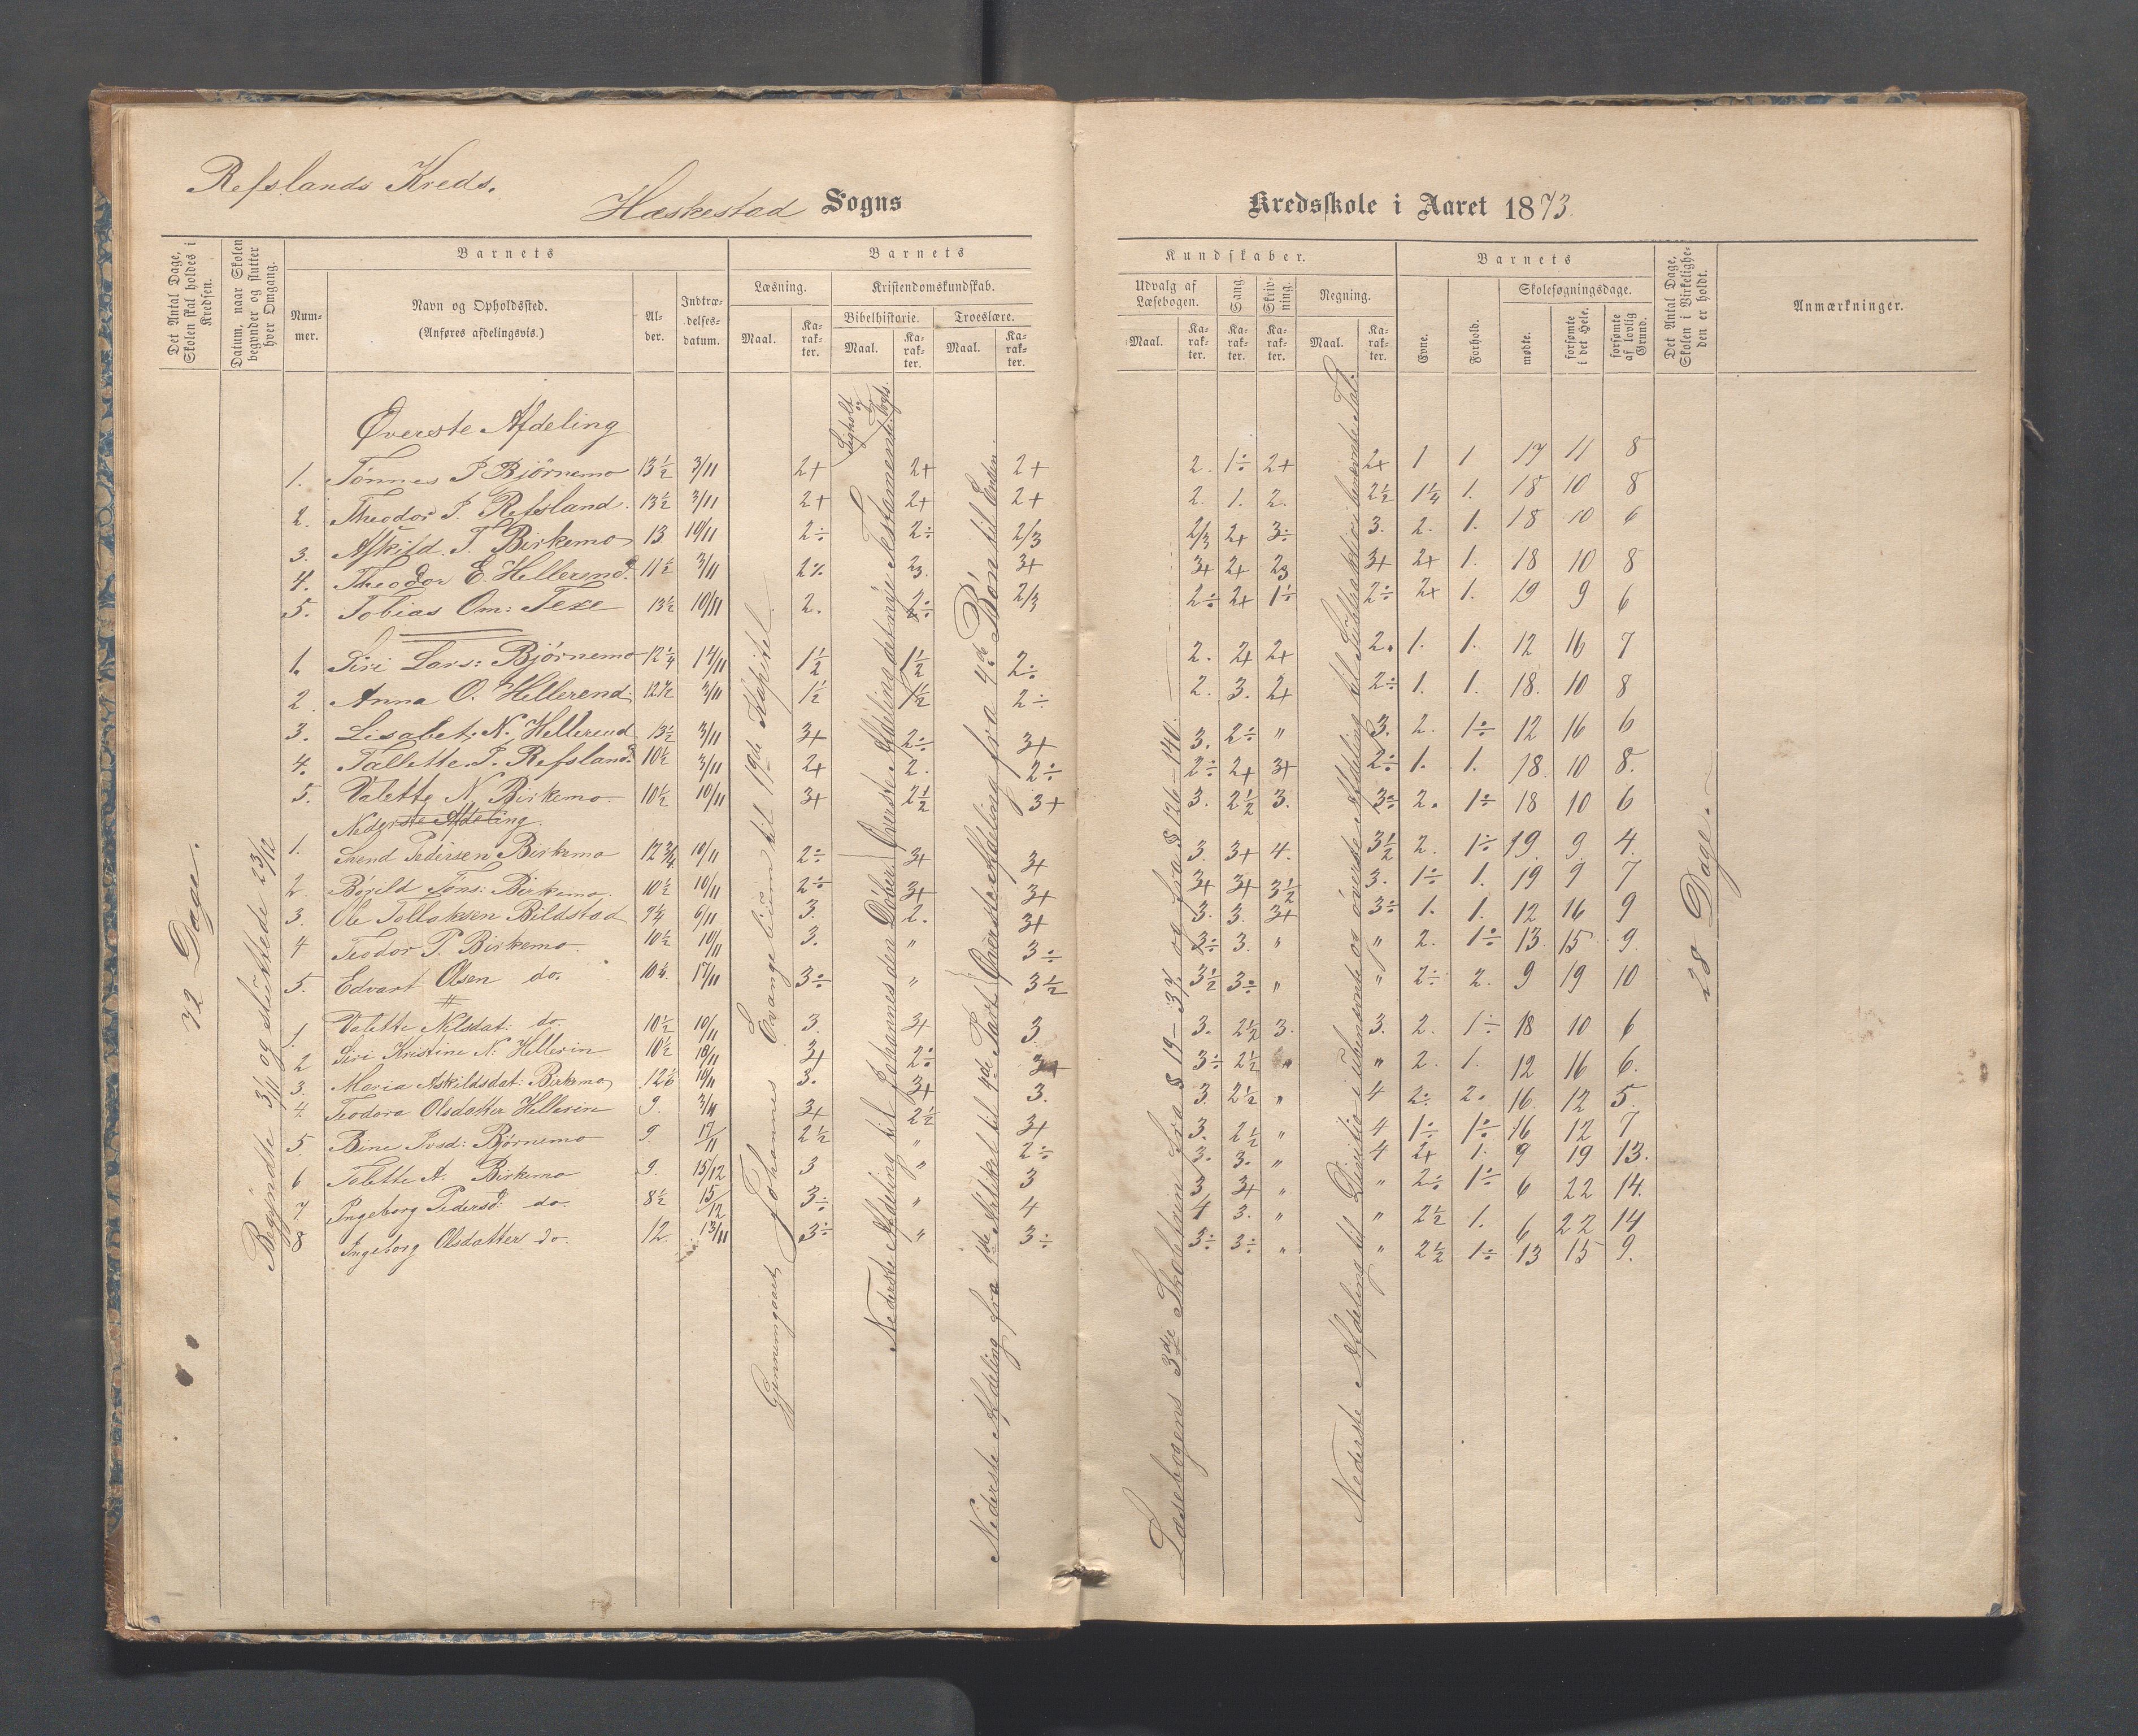 Refslands Kreds.
Hæskestad Sogns Kredsskole i Aaret 1873.
Det Antal Dage, Skolen skal holdes i Kredsen.
Datum, naar Skolen begynder og slutter hver Omgang.
Barnets
Nummer.
Navn og Opholdssted.
(Anføres afdelingsvis.)
Alder.
Indtrædelsesdatum.
Barnets Kundskaber.
Læsning.
Maal. Karakter.
Kristendomskundskab.
Bibelhistorie. Troeslære.
Maal. Karakter. Maal. Karakter.
Udvalg af Læsebogen.
Maal. Karakter.
Sang. Karakter.
Skrivning. Karakter.
Regning.
Maal. Karakter.
Barnets
Evne. Forhold.
Skolesøgningsdage.
mødte. forsømte i det Hele. forsømte af lovlig Grund.
Det Antal Dage, Skolen i Virkeligheden er holdt.
Anmærkninger.
Øverste Afdeling
1. Tønnes P Bjørnemo 13½ 3/11 2+ 2+ 2+ 2. 1÷ 2+ 2+ 1 1 17 11 8
2. Theodor P. Refsland. 13½ 3/11 2+ 2+ 2+ 2. 1. 2. 2½ 1¼ 1. 18 10 8
3. Askild. T. Birkemo 13 10/11 2÷ 2÷ 2/3 2/3 2+ 3÷ 3. 2. 1. 18 10 6
4. Theodor E. Hellerend. 11½ 3/11 2÷ 23. 3+ 3+ 2+ 23 3+ 2+ 1. 18 10 8
5. Tobias Om: Texe 13½ 10/11 2. 2÷ 2/3 2÷ 2+ 1÷ 2÷ 2+ 1. 19 9 6
1. Siri Lars: Bjørnemo 12¼ 14/11 1½ 1½ 2÷ 2. 2+ 2+ 2. 1. 1. 12 16 7
2. Anna O. Hellerend: 12½ 3/11 1½ 1½ 2÷ 2. 3. 2+ 2÷ 1. 1. 18. 10 8
3. Lisabet. N. Hellerend 13½ 3/11 3+ 2÷ 3+ 3. 2÷ " 3. 2. 1÷ 12 16 6
4. Tallette P. Refsland. 10½ 3/11 2+ 2. 2÷ 2÷ 2+ 3+ 2÷ 1. 1. 18. 10 8.
5. Valette N. Birkemo. 10½ 10/11 3+ 2½ 3+ 3. 2½ 3. 3÷ 2. 1÷ 18 10 6
Nederste Afdeling.
1. Svend Pedersen Birkemo 12¾ 10/11 2÷ 3+ 3+ 3. 3+ 4. 3½ 2. 1÷ 19. 9. 4.
2. Børild Tøns: Birkemo. 10½ 10/11 2÷ 3+ 3+ 3+ 3+ 3½ 3. 1÷ 1. 19 9 7
3. Ole Tollaksen Bildstad 9¼ 6/11 3. 2. 3+ 3. 3. 3+ 3÷ 1. 1. 12 16 9
4 Teodor P. Birkemo. 10½ 10/11 3. " 3÷ 3÷ 3. " " 2. 1÷ 13. 15 9.
5. Edvart Olsen do. 10¼. 17/11 3÷ " 3½ 3½ 3÷ " " 2÷ 2. 9 19 10
1. Valette Nilsdat: do. 10½ 10/11 3. 3+ 3 3. 2½ 3. 3. 2. 1÷ 18 10 6
2 Siri Kristine N. Hellerin 10½ 10/11 3+ 2÷ 3+ 3÷ 2½ " " 2. 1. 12 16 6.
3. Maria Askildsdat: Birkemo 12½ 10/11 3. 3+ 3. 3. 2½ " 4 2÷ 2. 16. 12 5.
4. Teodora Olsdatter Hellerin 9. 3/11 3+ 2½ 3+ 3. 2½ " 4 1÷ 1÷ 16 12 7
5. Bine Ivsd: Bjørnemo 9. 17/11 2½ " 2÷ 3. 3. " 4 2+ 1. 9 19 13.
6 Talette A. Birkemo 9. 15/12 3 " 3 3 3+ " " 2÷ 1÷ 6 22 14.
7 Ingeborg Pedersd. do. 8½ 15/12 3÷ " 4 4 3. " " 2½ 1. 6 22 14
8 Ingeborg Olsdatter do. 12. 13/11 3÷ " 3÷ 3÷ 3÷ " " 2½ 1÷ 13 15 9.
72 Dage.
Begyndte 3/11 og sluttede 23/12
Gjennemgaaet Johannes Evangelium til 19de Kapitel.
Nederste Afdeling til Johannes den Døber. Øverste Afdeling det nye Testamente
Nederste Afdeling fra 1ste Artikel til 4de Part. Øverste Afdeling fra 4de Bøn til Enden.
Læsebogens 3de Skoletrin fra § 19–34 og fra § 126–140.
Nederste Afdeling til Divisio i ubenævnte og øverste Afdeling til Subtraktio i benævnte Tal.
28 Dage.